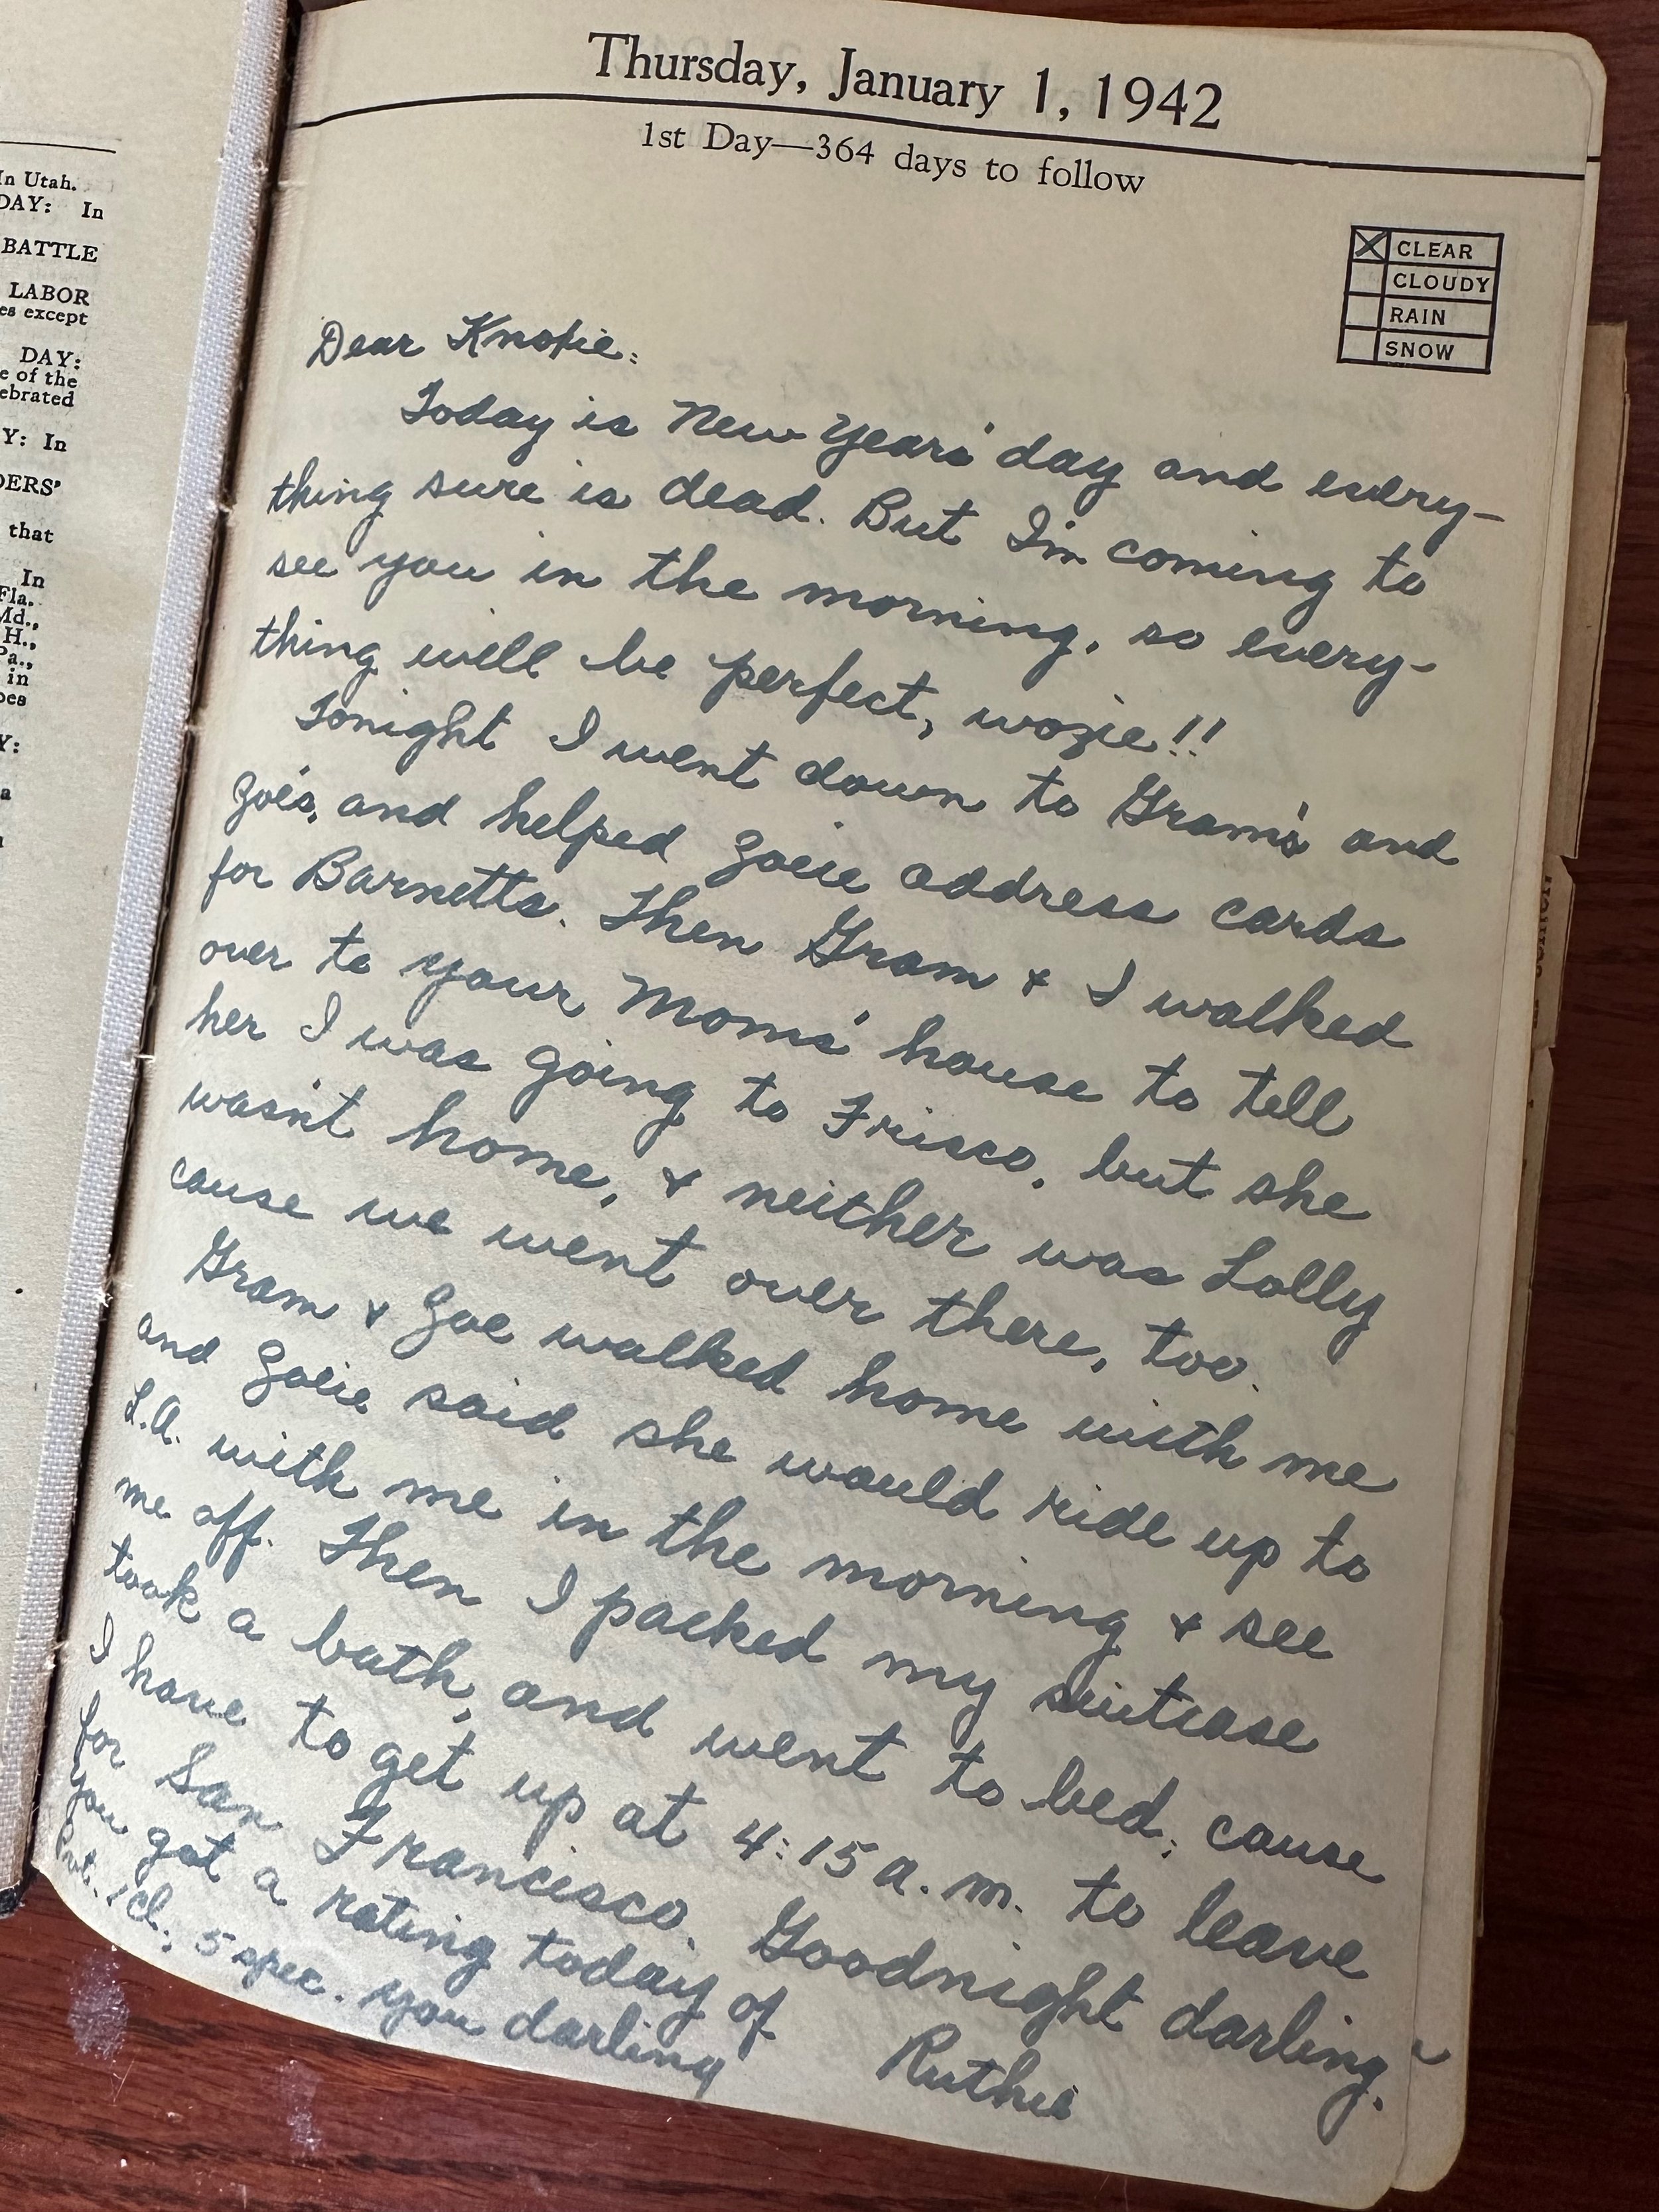 In Utah.
DAY: In
BATTLE
LABOR
es except
DAY:
e of the
ebrated
Y: In
DERS'
that
In
Fla.
Md.,
H.,
Pa.,
in
oes
Y:
a
Thursday, January 1, 1942
1st Day—364 days to follow
X CLEAR
CLOUDY
RAIN
SNOW
Dear Knotie:
Today is New Years' day and every-
thing sure is dead. But I'm coming to
see you in the morning, so every-
thing will be perfect, wozie!!
Tonight I went down to Gram's and
Zoe's, and helped Zoeie address cards
for Barnetts. Then Gram & I walked
over to your Moms' house to tell
her I was going to Frisco, but she
wasn't home, & neither was Lolly
cause we went over there, too.
Gram & Zoe walked home with me
and Zoeie said she would ride up to
L.A. with me in the morning & see
me off. Then I packed my suitcase
took a bath, and went to bed, cause
I have to get up at 4:15 a.m. to leave
for San Francisco. Goodnight darling.
you got a rating today of
Pvt. 1cl., 5 spec. you darling
Ruthie